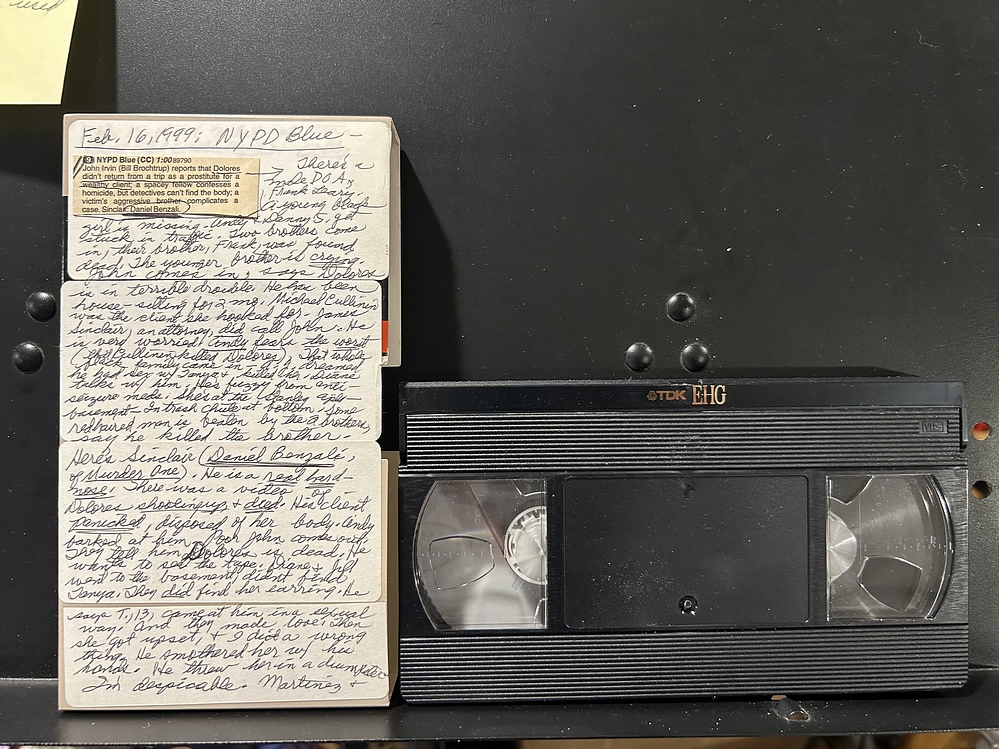 used
Feb. 16, 1999; NYPD Blue -
9 NYPD Blue (CC) 1:00 89790
John Irvin (Bill Brochtrup) reports that Dolores
didn't return from a trip as a prostitute for a
wealthy client; a spacey fellow confesses a
homicide, but detectives can't find the body; a
victim's aggressive brother complicates a
case. Sinclair: Daniel Benzali.
There's a
male D.O.A.,
Frank Leary.
a young black
girl is missing. Andy & Danny S. get
stuck in traffic. Two brothers come
in, their brother, Frank, was found
dead. The younger brother is crying.
John comes in, says Dolores
is in terrible trouble. He has been
house-sitting for 2 mo. Michael Cullinin
was the client she hooked for. James
Sinclair, an attorney, did call John. He
is very worried. Andy fears the worst
(that Cullinen killed Dolores). That whole
black family came in. he dreamed
he had sex w/ Tanya & killed her. Diane
talks w/ him; He's fuzzy from anti-
seizure meds. She's at the Stanley apts-
basement - In trash chute at bottom. Some
redhaired man is beaten by the 2 brothers,
say he killed the brother.
Here's Sinclair (Daniel Benzali,
of Murder One). He is a real hard-
nose! There was a video of
Dolores shooting up & died. His client
panicked, disposed of her body. Andy
barked at him. Poor John comes over.
They tell him Dolores is dead. He
wants to see the tape. Diane & Jill
went to the basement, didn't find
Tanya. They did find her earring. He
says T, 13, came at him in a sexual
way. And they made love. Then
she got upset, & I did a wrong
thing. He smothered her w/ his
hands. He threw her in a dumpster.
I'm despicable. Martinez &
TDK EHG